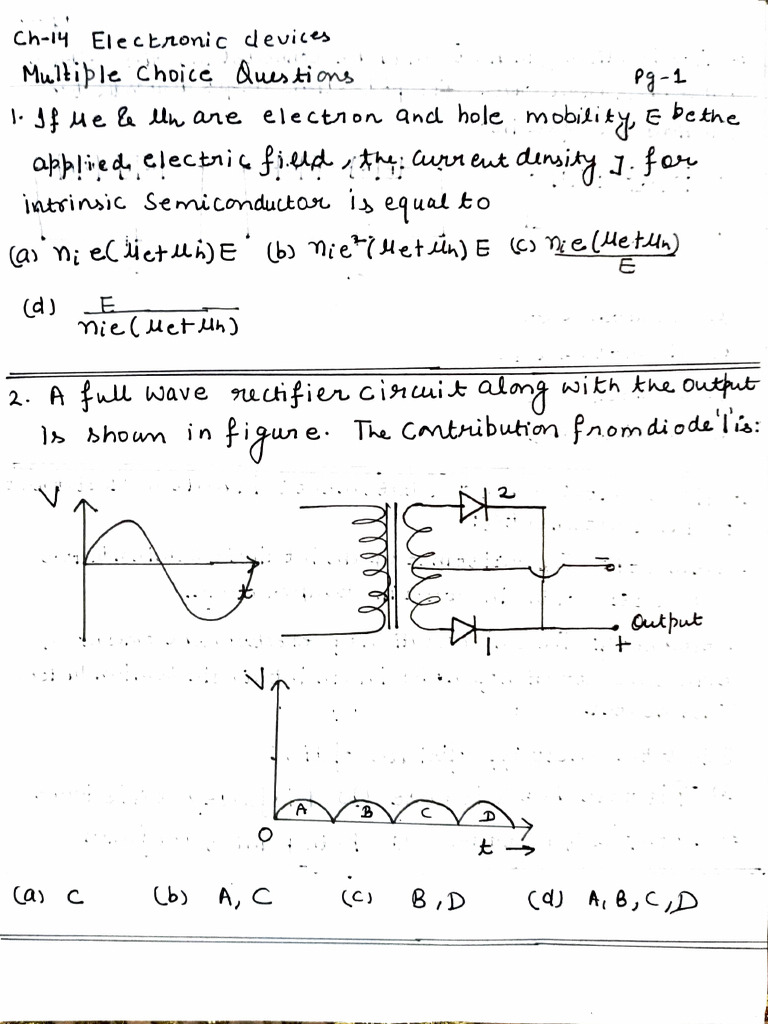 Ch-14 Electronic devices
Multiple Choice Questions Pg-1
1. If μe & μn are electron and hole mobility, E be the
applied electric field, the current density J. for
intrinsic Semiconductor is equal to
(a) ni e(μe+μh)E (b) nie²(μe+μn) E (c) nie(μe+μn)/E
(d) E/nie(μe+μh)
2. A full wave rectifier circuit along with the output
Is shown in figure. The Contribution from diode '1' is:
V
2
t
-
Output
1
+
V
A B C D
O
t →
(a) C (b) A, C (c) B, D (d) A, B, C, D